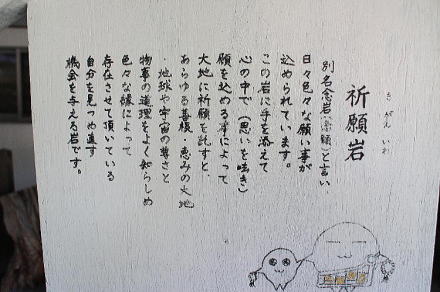 祈願岩
きがんいわ
別名念岩(祈願)と言い
日々色々な願い事が
込められています。
この岩に手を添えて
心の中で(思いを呟き)
願を込める事によって
大地に祈願を託すと、
あらゆる善様 恵みの大地
・地球や宇宙の尊さと
物事の道理をよく知らしめ
色々な縁によって
存在させて頂いている
自分を見つめ直す
機会を与える岩です。